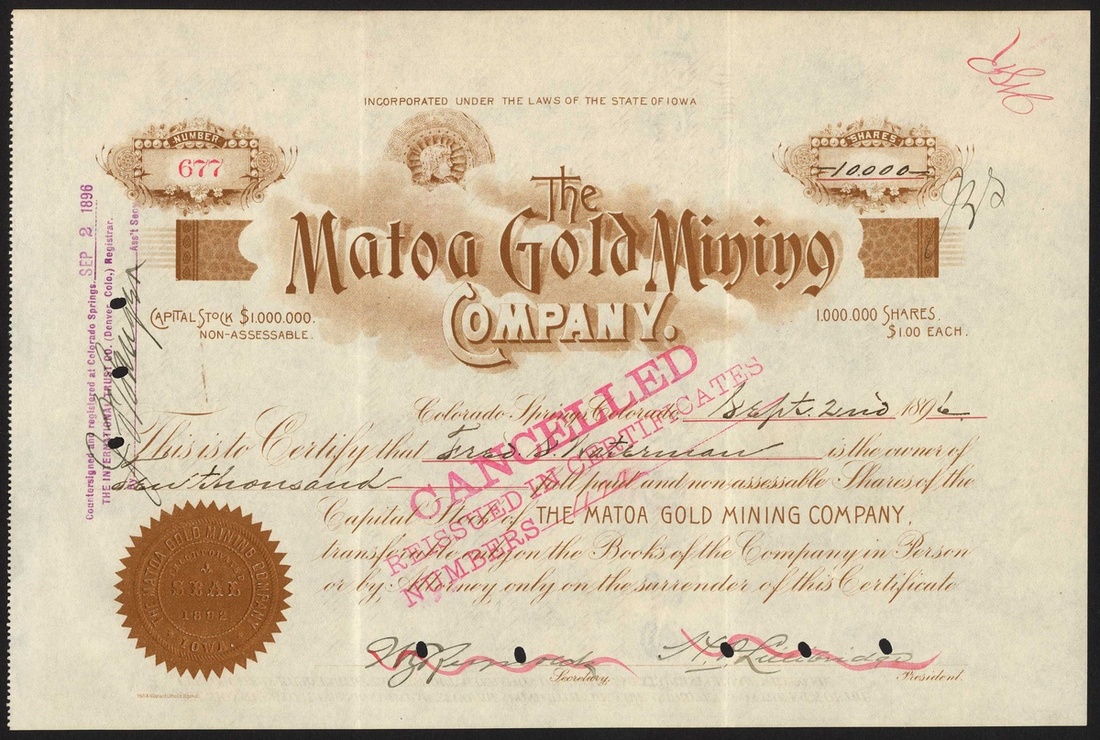 INCORPORATED UNDER THE LAWS OF THE STATE OF IOWA
NUMBER
677
SHARES
10,000
The
Matoa Gold Mining
COMPANY.
CAPITAL STOCK $1.000.000.
NON-ASSESSABLE.
1.000.000 SHARES.
$1.00 EACH.
Colorado Springs, Colorado Sept. 2nd 1896.
This is to Certify that Fred S. Waterman is the owner of
Ten thousand full paid and non-assessable Shares of the
Capital Stock of THE MATOA GOLD MINING COMPANY,
transferable only on the Books of the Company in Person
or by Attorney only on the surrender of this Certificate
Secretary.
President.
CANCELLED
REISSUED IN CERTIFICATES
NUMBERS
Countersigned and registered at Colorado Springs, SEP 2 1896
THE INTERNATIONAL TRUST CO. (Denver, Colo.) Registrar.
Ass't Sec
THE MATOA GOLD MINING COMPANY
INCORPORATED
SEAL
1892
IOWA.